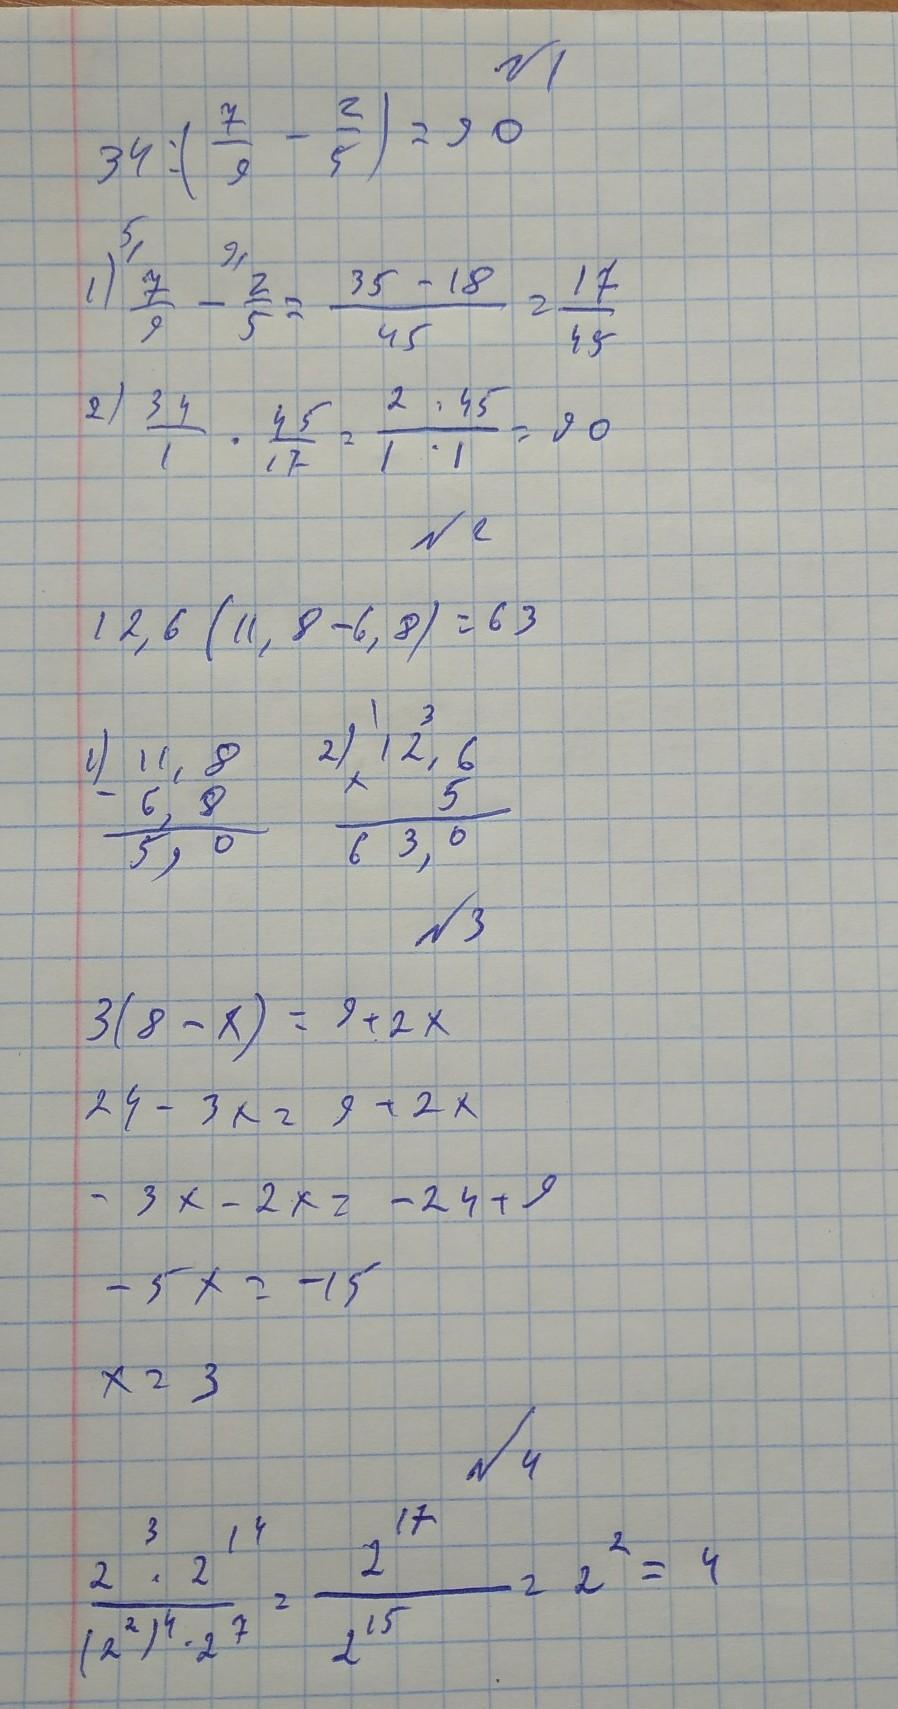 №1
34:(7/9 - 2/5) = 90
1) 7/9 - 2/5 = (35 - 18)/45 = 17/45
2) 34/1 · 45/17 = (2 · 45)/(1 · 1) = 90
№2
12,6 (11,8-6,8) = 63
1) 11,8 2) 12,6
- 6,8 × 5
5,0 63,0
№3
3(8 - x) = 9+2x
24 - 3x = 9 + 2x
- 3x - 2x = -24 + 9
- 5x = -15
x = 3
№4
(2³ · 2¹⁴)/((2²)⁴ · 2⁷) = 2¹⁷/2¹⁵ = 2² = 4